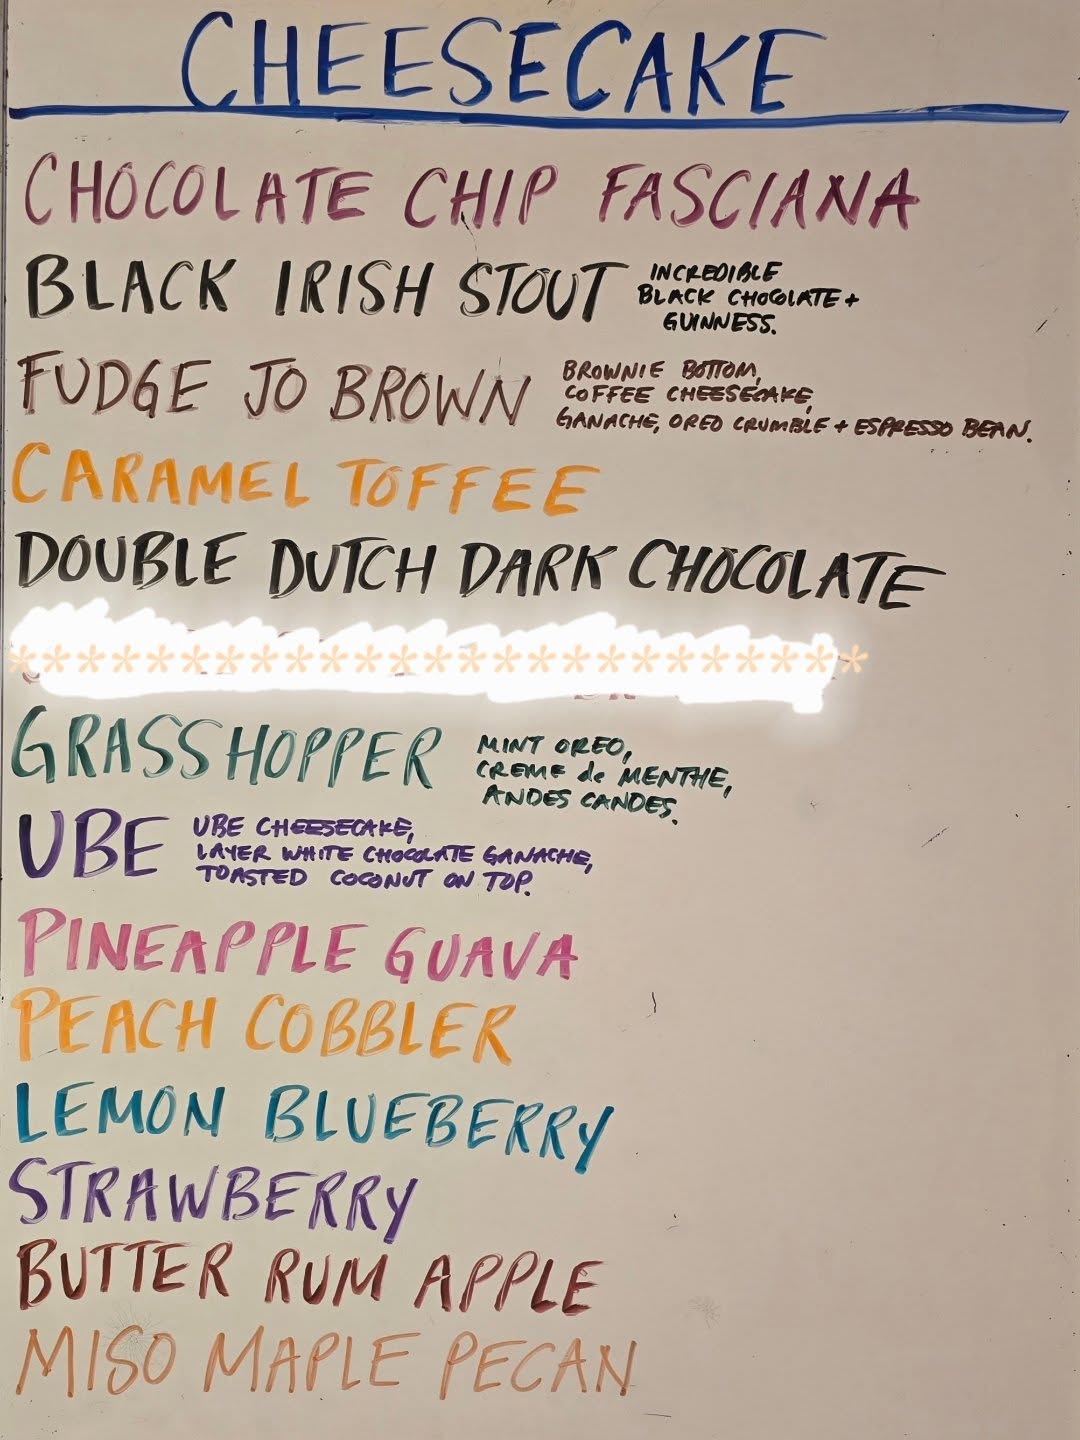 CHEESECAKE
CHOCOLATE CHIP FASCIANA
BLACK IRISH STOUT
INCREDIBLE
BLACK CHOCOLATE +
GUINNESS.
FUDGE JO BROWN
BROWNIE BOTTOM,
COFFEE CHEESECAKE,
GANACHE, OREO CRUMBLE + ESPRESSO BEAN.
CARAMEL TOFFEE
DOUBLE DUTCH DARK CHOCOLATE
*************************
GRASSHOPPER
MINT OREO,
CREME de MENTHE,
ANDES CANDES.
UBE
UBE CHEESECAKE,
LAYER WHITE CHOCOLATE GANACHE,
TOASTED COCONUT ON TOP.
PINEAPPLE GUAVA
PEACH COBBLER
LEMON BLUEBERRY
STRAWBERRY
BUTTER RUM APPLE
MISO MAPLE PECAN